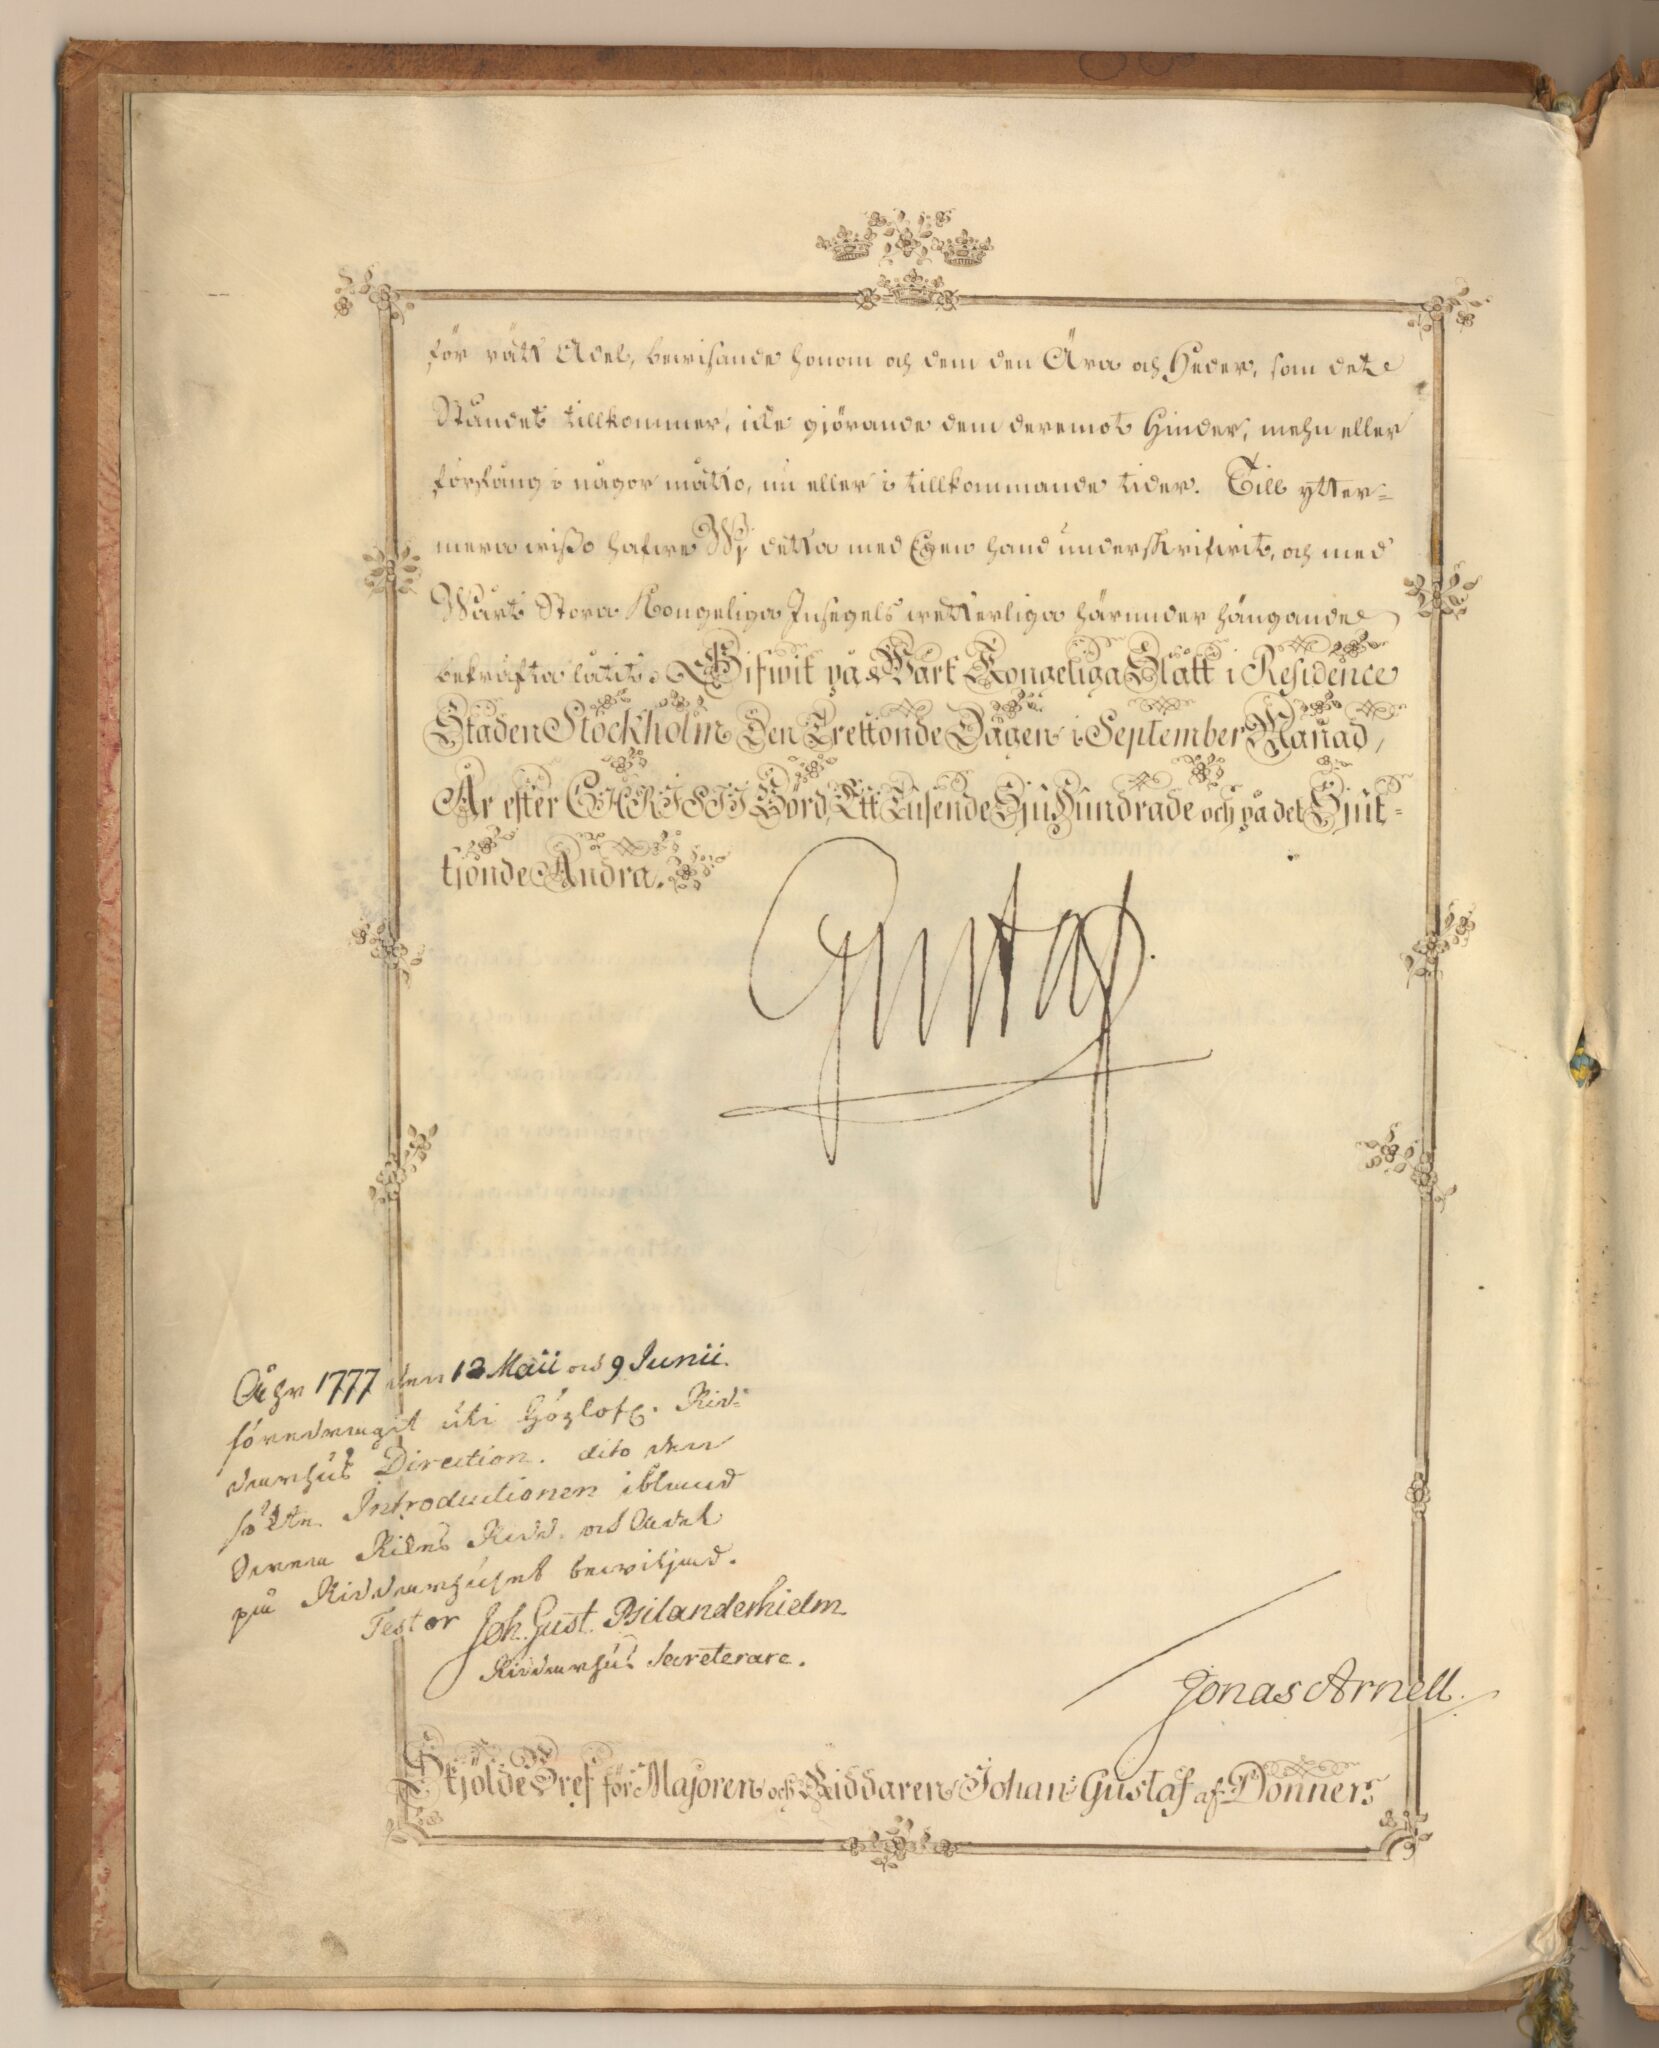 för rätt Adel, bewisande honom och dem den Ära och Heder, som det
Ståndet tillkommer, icke giörande dem deremot Hinder, mehn eller
förfång i någor måtto, nu eller i tillkommande tider. Till ytter=
mera wisso hafwe Wj detta med Egen hand underskrifwit, och med
Wårt Stora Kongeliga Insegels wetterliga härunder hängande
bekräfta låtit. Gifwit på Wårt Kongeliga Slått i Residence
Staden Stockholm Den Trettonde Dagen i September Månad,
År efter CHRISTI Börd, Ett Tusende Sju Hundrade och på det Sjut=
tjonde Andra.
Gustaf.
Åhr 1777 den 12 Maii och 9 Junii
föredragit uti Högloft. Rid=
darhus Direction. dito den
sökte Introductionen ibland
Swea Rikes Ridd. och Adel
på Riddarhuset bewiljad.
Testor Joh. Gust. Psilanderhielm
Riddarhus Secreterare.
Jonas Arnell.
Skjölde Bref för Majoren och Riddaren Johan Gustaf af Donner.